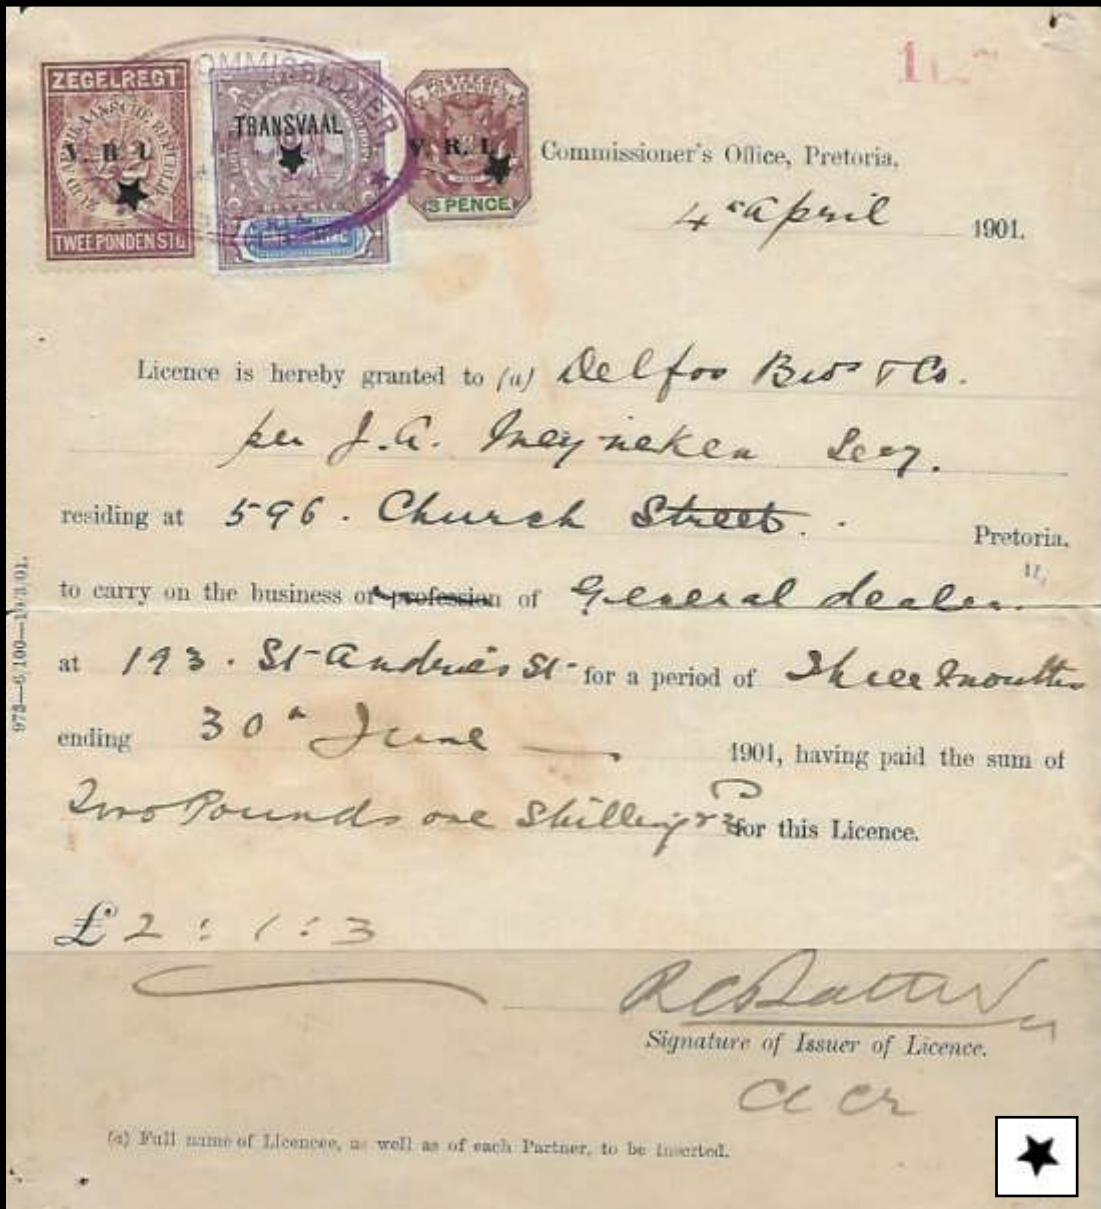 ZEGELREGT
ZUID AFRIKAANSCHE REPUBLIEK
V. R. I.
TWEE PONDEN STG
COMMISSIONER
TRANSVAAL
POSTZEGEL
V. R. I.
3 PENCE
Commissioner's Office, Pretoria,
4th April 1901.
Licence is hereby granted to (a) Delfos Bros & Co.
per J. A. Meyneken Secy.
residing at 596. Church Street. Pretoria,
to carry on the business or profession of General dealer.
at 193. St Andries St for a period of Three Months
ending 30th June 1901, having paid the sum of
Two Pounds one Shilling & 3d for this Licence.
£2 : 1 : 3
Signature of Issuer of Licence.
(a) Full name of Licencee, as well as of each Partner, to be inserted.
973—6/100—19/3/01.